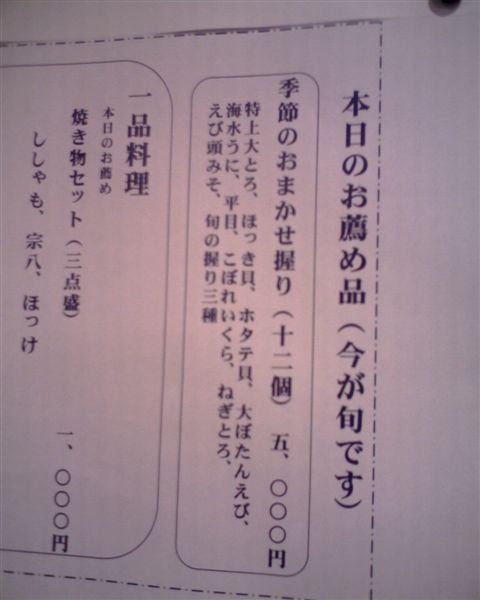 本日のお薦め品(今が旬です)
季節のおまかせ握り(十二個) 五、〇〇〇円
特上大とろ、ほっき貝、ホタテ貝、大ぼたんえび、
海水うに、平目、こぼれいくら、ねぎとろ、
えび頭みそ、旬の握り三種
一品料理
本日のお薦め
焼き物セット(三点盛)
ししゃも、宗八、ほっけ
一、〇〇〇円